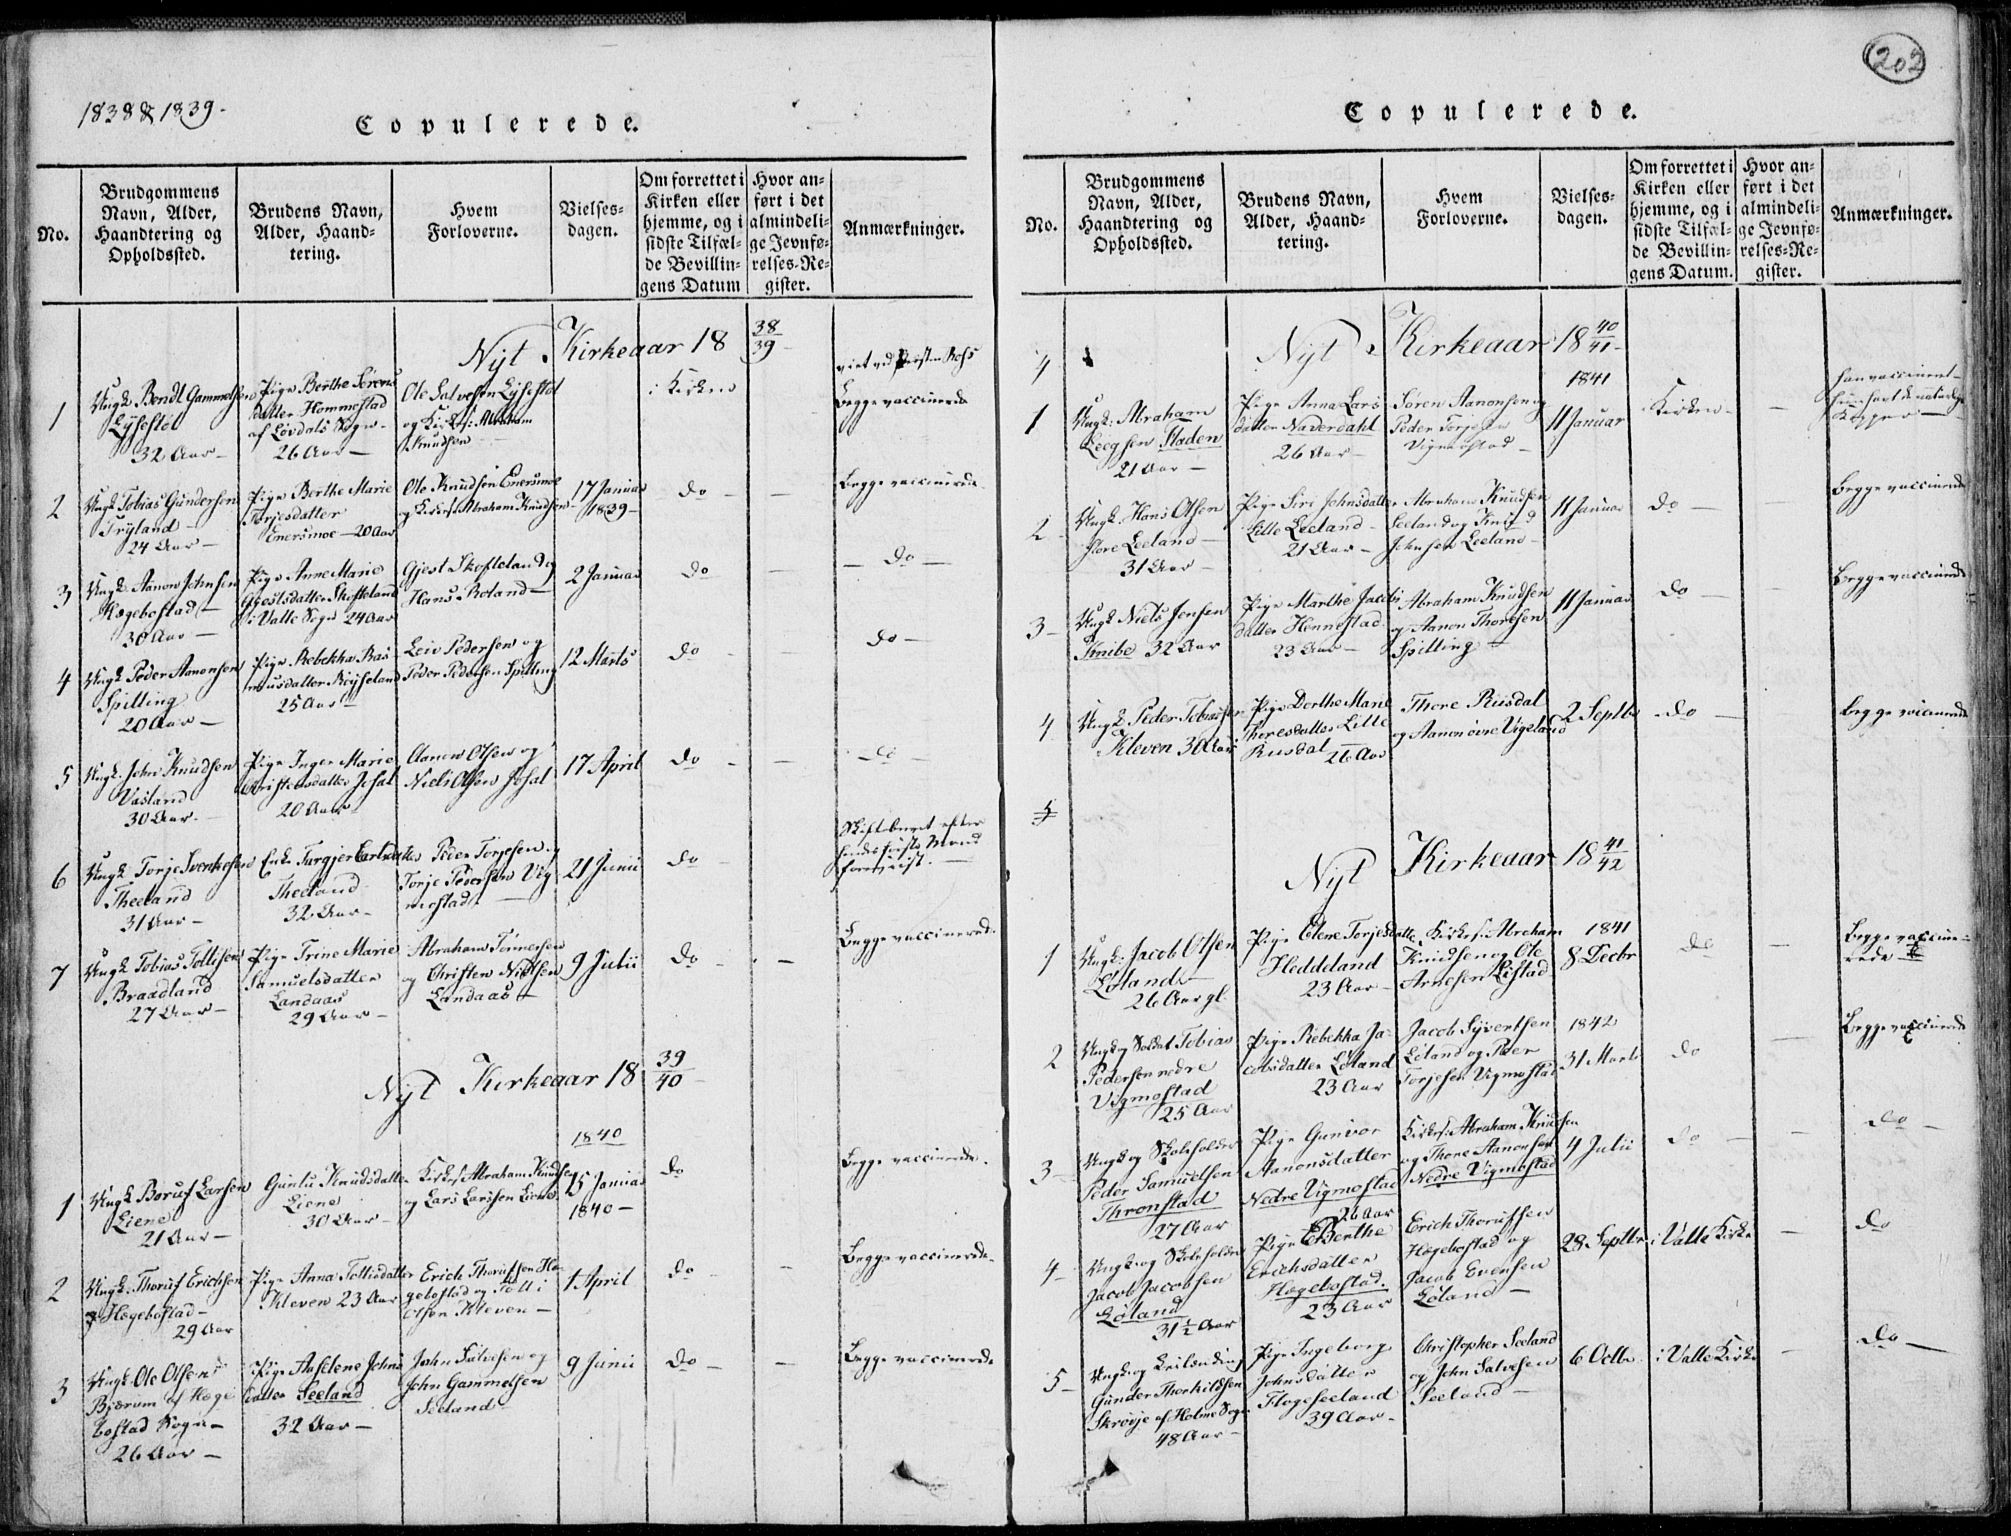 1838 & 1839.
Copulerede.
No.
Brudgommens
Navn, Alder,
Haandtering og
Opholdssted.
Brudens Navn,
Alder, Haand-
tering.
Hvem
Forloverne.
Vielses-
dagen.
Om forrettet i
Kirken eller
hjemme, og i
sidste Tilfæl-
de Bevillin-
gens Datum
Hvor an-
ført i det
almindeli-
ge Jevnfø-
relses-Re-
gister.
Anmærkninger.
Nyt Kirkeaar 18 38/39
1
Ungk. Bendt Gammelsen
Lysestøl
32 Aar
Pige Berthe Sørens
datter Hommestad
af Løvdals Sogn
26 Aar
Ole Salvesen Lysestøl
og Kirkes: Abraham
Knudsen
i Kirken
Begge vaccinerede
2
Ungk. Tobias Gundersen
Tryland
24 Aar
Pige Berthe Marie
Torjesdatter
Enersmoe 20 Aar
Ole Knudsen Enersmoe
og Kirkes: Abraham Knudsen
17 Januar
1839
do
Begge vaccinerede
3
Ungk. Aanon Johnsen
Hægebostad
30 Aar
Pige Anne Marie
Gjestsdatter Skofteland
i Valle Sogn 24 Aar
Gjest Skofteland og
Hans Roland
2 Januar
do
do
4
Ungk. Peder Aanonsen
Spilling
20 Aar
Pige Rebekka Ras
musdatter Røyseland
25 Aar
Leiv Pedersen og
Peder Pedersen Spilling
12 Marts
do
do
5
Ungk. John Knudsen
Vasland
30 Aar
Pige Inger Marie
Christensdatter Josal
20 Aar
Aanon Olsen og
Niels Olsen Josal
17 April
do
do
6
Ungk. Torje Svenkesen
Theeland
31 Aar
Enke Turgjer
Theeland
32 Aar
Peder Torjesen og
Torje Pedersen Vig
mostad
21 Junii
do
Skiftebrevet efter
hendes første Mand
foreviist.
7
Ungk. Tobias Tollisen
Braadland
27 Aar
Pige Trine Marie
Samuelsdatter
Landaas
29 Aar
Abraham Tønnesen
og Christen Nielsen
Landaas
9 Julii
do
Begge vaccinerede.
Nyt Kirkeaar 18 39/40
1840
1
Ungk. Boruf Larsen
Liene
21 Aar
Guntu Knudsdatter
Liene
30 Aar
Kirkes: Abraham Knudsen
og Lars Larsen Liene
25 Januar
1840
do
Begge vaccinerede.
2
Ungk. Thoruf Erichsen
Hægebostad
29 Aar
Pige Anna Tollisdatter
Kleven 23 Aar
Erich Thorufsen Hæ
gebostad og Tolli
Olsen Kleven
1 April
do
Begge vaccinerede
3
Ungk. Ole Olsen
Bjærum af Hæge
bostad Sogn
26 Aar
Pige Asselene Johns
datter Seeland
32 Aar
John Salvesen og
John Gammelsen
Seeland
9 Junii
do
Begge vaccinerede
202
Copulerede.
No.
Brudgommens
Navn, Alder,
Haandtering og
Opholdssted.
Brudens Navn,
Alder, Haand-
tering.
Hvem
Forloverne.
Vielses-
dagen.
Om forrettet i
Kirken eller
hjemme, og i
sidste Tilfæl-
de Bevillin-
gens Datum.
Hvor an-
ført i det
almindeli-
ge Jevnfø-
relses-Re-
gister.
Anmærkninger.
4
Nyt Kirkeaar 18 40/41
1841
1
Ungk. Abraham
Leegsen Staden
21 Aar
Pige Anna Lars
datter Naverdahl
26 Aar
Søren Aanonsen og
Peder Torjesen
Vigmostad
11 Januar
Kirken
han vaccineret
hun havt de naturlige
Kopper
2
Ungk. Hans Olsen
Store Leeland
31 Aar
Pige Siri Johnsdatter
Lille Leeland
21 Aar
Abraham Knudsen
Leeland og Knud
Johnsen Leeland
11 Januar
do
Begge vaccinerede
3
Ungk. Niels Jensen
Knibe 32 Aar
Pige Marthe Jacobs
datter Hennestad
23 Aar
Abraham Knudsen
og Aanon Thoresen
Spilling
11 Januar
do
Begge vaccinerede
4
Ungk. Peder Tobiassen
Kleven 30 Aar
Pige Dorthe Marie
Thoresdatter Lille
Ruusdal 26 Aar
Thore Ruusdal
og Aanon øvre Vigeland
2 Septbr
do
begge vaccinerede
5
Nyt Kirkeaar 18 41/42
1
Ungk. Jacob Olsen
Løland
26 Aar gl.
Pige Elene Torjesdatter
Heddeland
23 Aar
Kirkes: Abraham
Knudsen og Ole
Arnesen Listad
1841
8 Decbr
do
Begge vaccine-
rede
2
Ungk. og Soldat Tobias
Pedersen nedre
Vigmostad
25 Aar
Pige Rebekka Ja-
cobsdatter Løland
23 Aar
Jacob Syvertsen
Løland og Peder
Torjesen Vigmostad
1842
31 Marts
do
Begge vaccinerede
3
Ungk. og Skoleholder
Peder Samuelsen
Thronstad
27 Aar
Pige Gunvor
Aanonsdatter
Nedre Vigmostad
26 Aar
Kirkes: Abraham Knudsen
og Thore Aanonsen
Nedre Vigmostad
4 Julii
do
do
4
Ungk. og Skoleholder
Jacob Jacobsen
Løland
31 1/2 Aar
Pige Berthe
Erichsdatter
Hægebostad.
23 Aar
Erich Thorufsen
Hægebostad og
Jacob Evensen
Løland
28 Septbr
i Valle Kirke
do
5
Ungk. og Leilending
Gunder Thorkildsen
Skrøvje af Holme Sogn
48 Aar
Pige Ingeborg
Johnsdatter
Flogeseeland
39 Aar
Christopher Seeland
og John Salvesen
Seeland
6 Octbr
i Valle Kirke
do